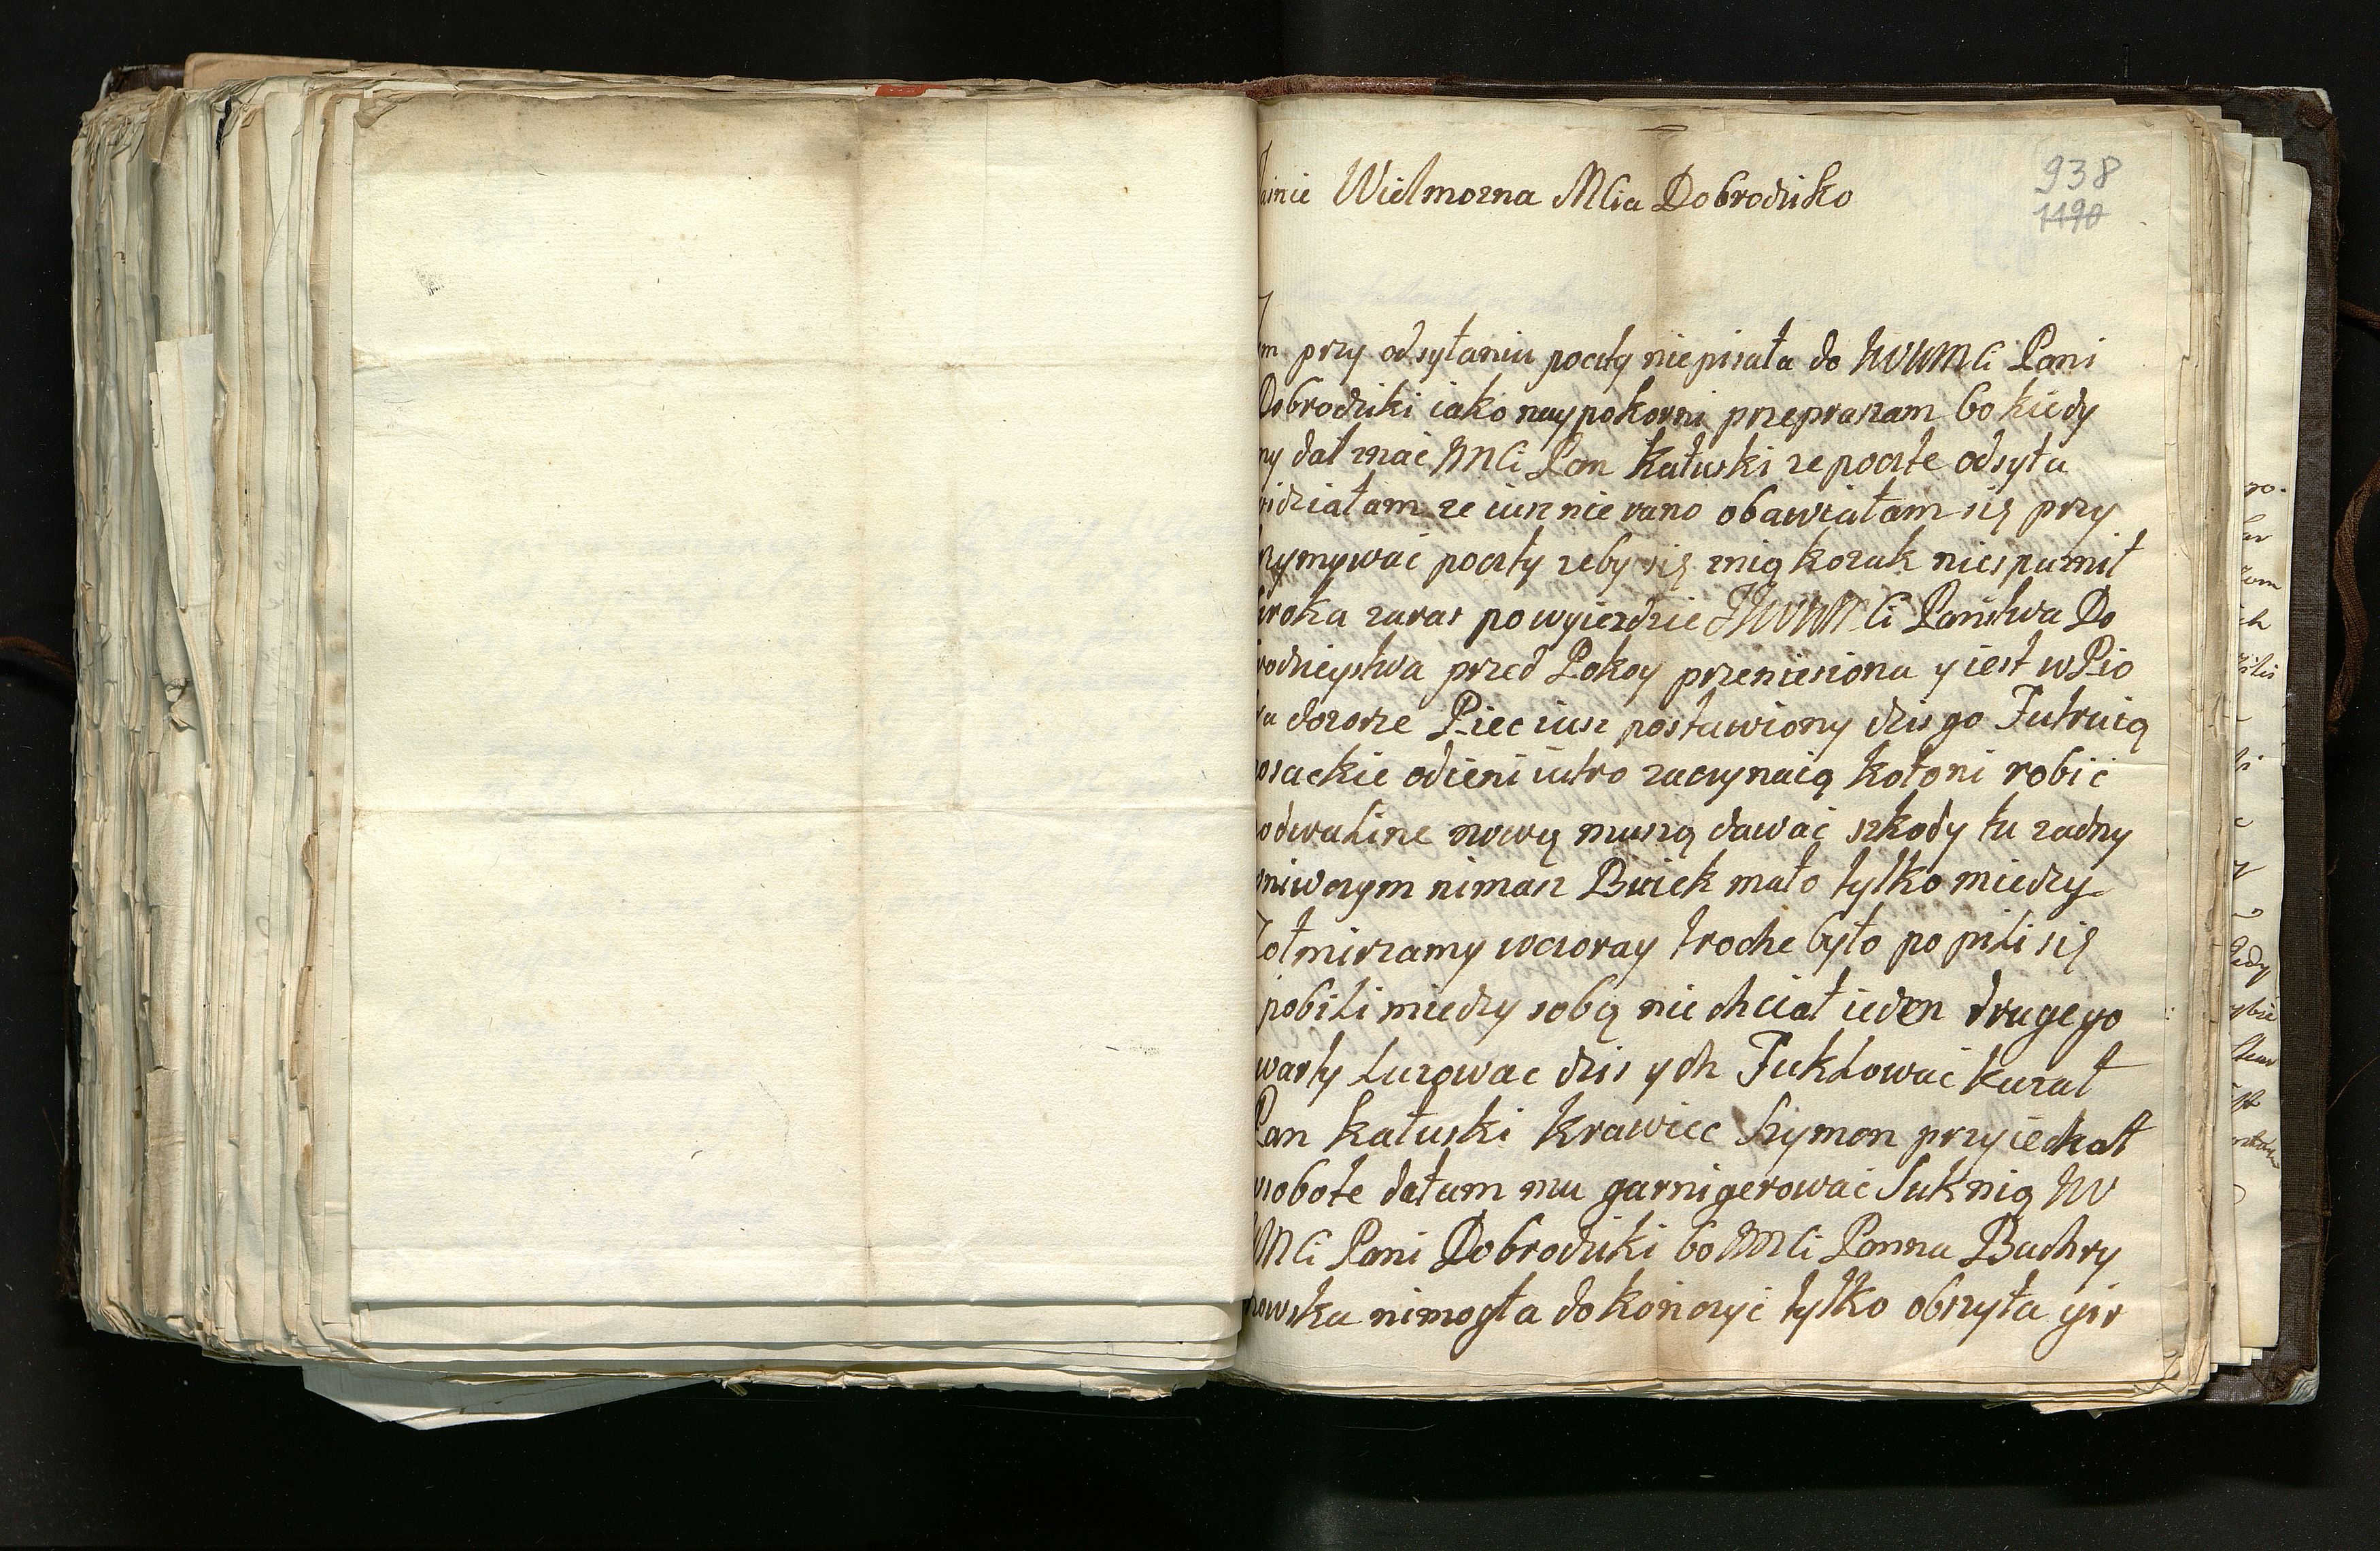 938
1190
Wielmozna MCia Dobrodziko
przy odsyłaniu poczty nie pisała do Pani
Dobrodziki iako naypokorni przepraszam bo kiedy
dał znać MCi Pan Kałuski ze poczte odsyła
widziałam ze iusz nie rano obawiałam się przy
trzymywać poczty zeby się znią kozak niespuznił
zaras powyiezdzie Państwa Do
brodzieystwa przed Pokoy przeniesiona y iest w
dozorze Piec iusz postawiony dzis go Futruią
odzieni iutro zaczynaią kołoni robić
podwaline nową muszą dawać szkody tu zadny
wniwczym nimasz Biiek mało tylko miedzy
Zołmirzamy wczoray troche było popili się
pobili miedzy sobą nie chciał ieden drugego
warty Luzować dzis ych Fuktlować kazał
Pan Kałuski Krawiec Szymon przyiechał
wsobote dałam mu garnigerować Suknią
MCi Pani Dobrodziki bo MCi Panna Bachry
nowska nimogła dokończyć tylko obszyła